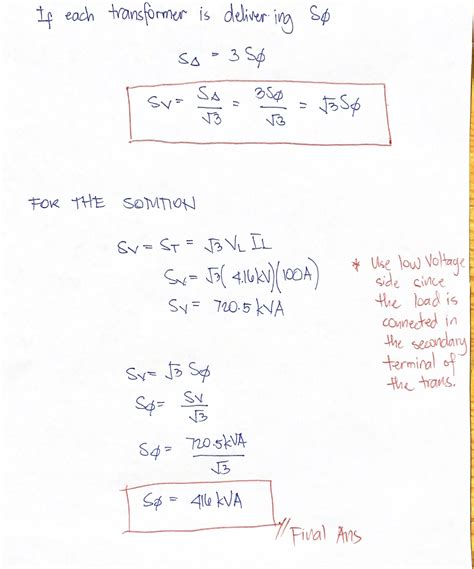 If each transformer is delivering Sφ
SΔ = 3Sφ
Sv = SΔ/√3 = 3Sφ/√3 = √3Sφ
FOR THE SOLUTION
Sv = ST = √3 VL IL
Sv = √3(4.16kV)(100A)
Sv = 720.5 kVA
* Use low voltage
side since
the load is
connected in
the secondary
terminal of
the trans.
Sv = √3 Sφ
Sφ = Sv/√3
Sφ = 720.5kVA/√3
Sφ = 416 kVA
Final Ans